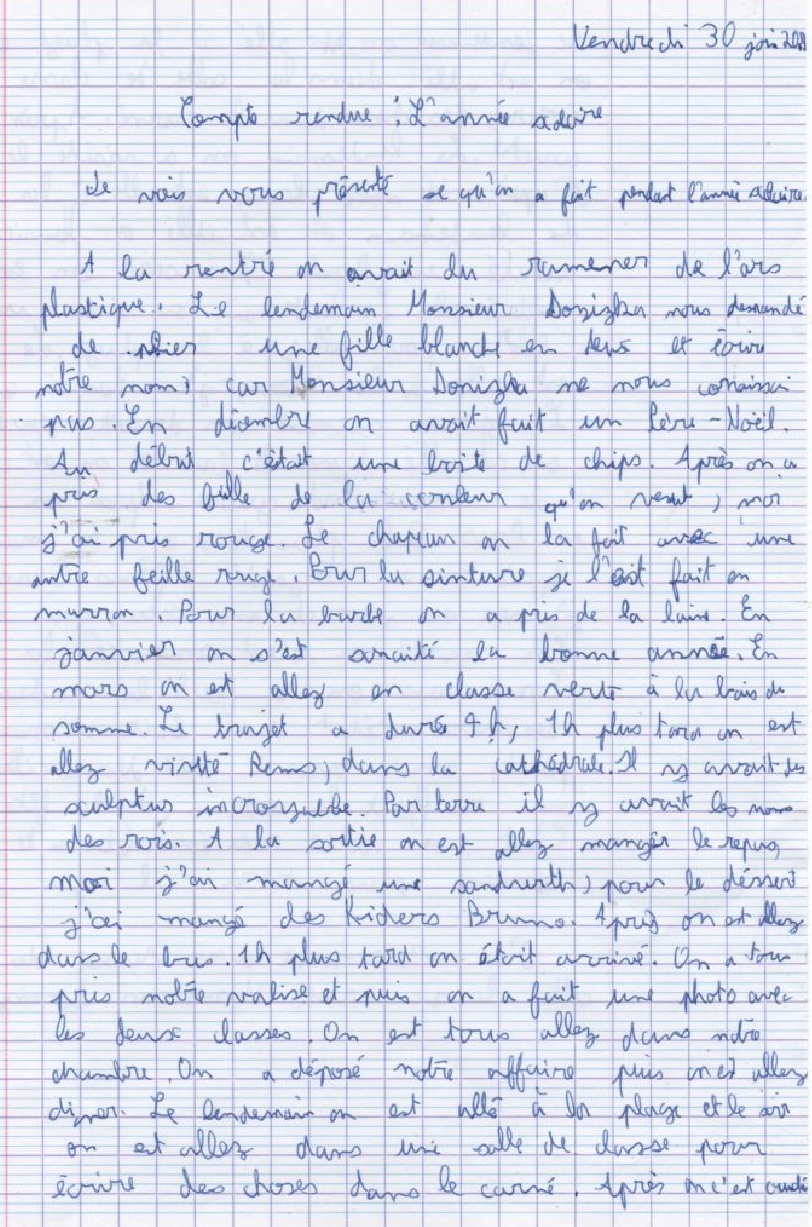 Vendredi 30 juin
Compte rendue : L'année scolaire
Je vais vous présenté se qu'on a fait pendant l'année scolaire.
A la rentré on avait du ramener de l'ars
plastique. Le lendemain Monsieur Donizka nous demandé
de plier une fille blanche en deus et écrire
notre nom, car Monsieur Donizka ne nous conaissai
pas. En décembre on avait fait un Père-Noël.
Au début c'était une boite de chips. Après on a
pris des de la couleur qu'on veut, moi
j'ai pris rouge. Le chapeau on la fait avec une
autre feille rouge. Pour la sinture je l'est fait en
marron. Pour la barbe on a pris de la laine. En
janvier on s'est souaité la bonne année. En
mars on est allez en classe verte à la baie de
somme. Le trajet a durée 4h, 1h plus tard on est
allez visité Rems, dans la cathédrale. Il ny avait des
sculptur. Par terre il ny avait les noms
des rois. A la sortie on est allez manger le repas,
moi j'ai mangé une, pour le déssert
j'ai mangé des Kiders Bruno. Après on est allez
dans le bus. 1h plus tard on était arrivé. On a tous
pris notre valise et puis on a fait une photo avec
les deux classes. On est tous allez dans notre
chambre. On a déposé notre affaire puis on est allez
diner. Le lendemain on est allé à la plage et le soir
on est allez dans une salle de classe pour
écrire des choses dans le carné. Après on c'est